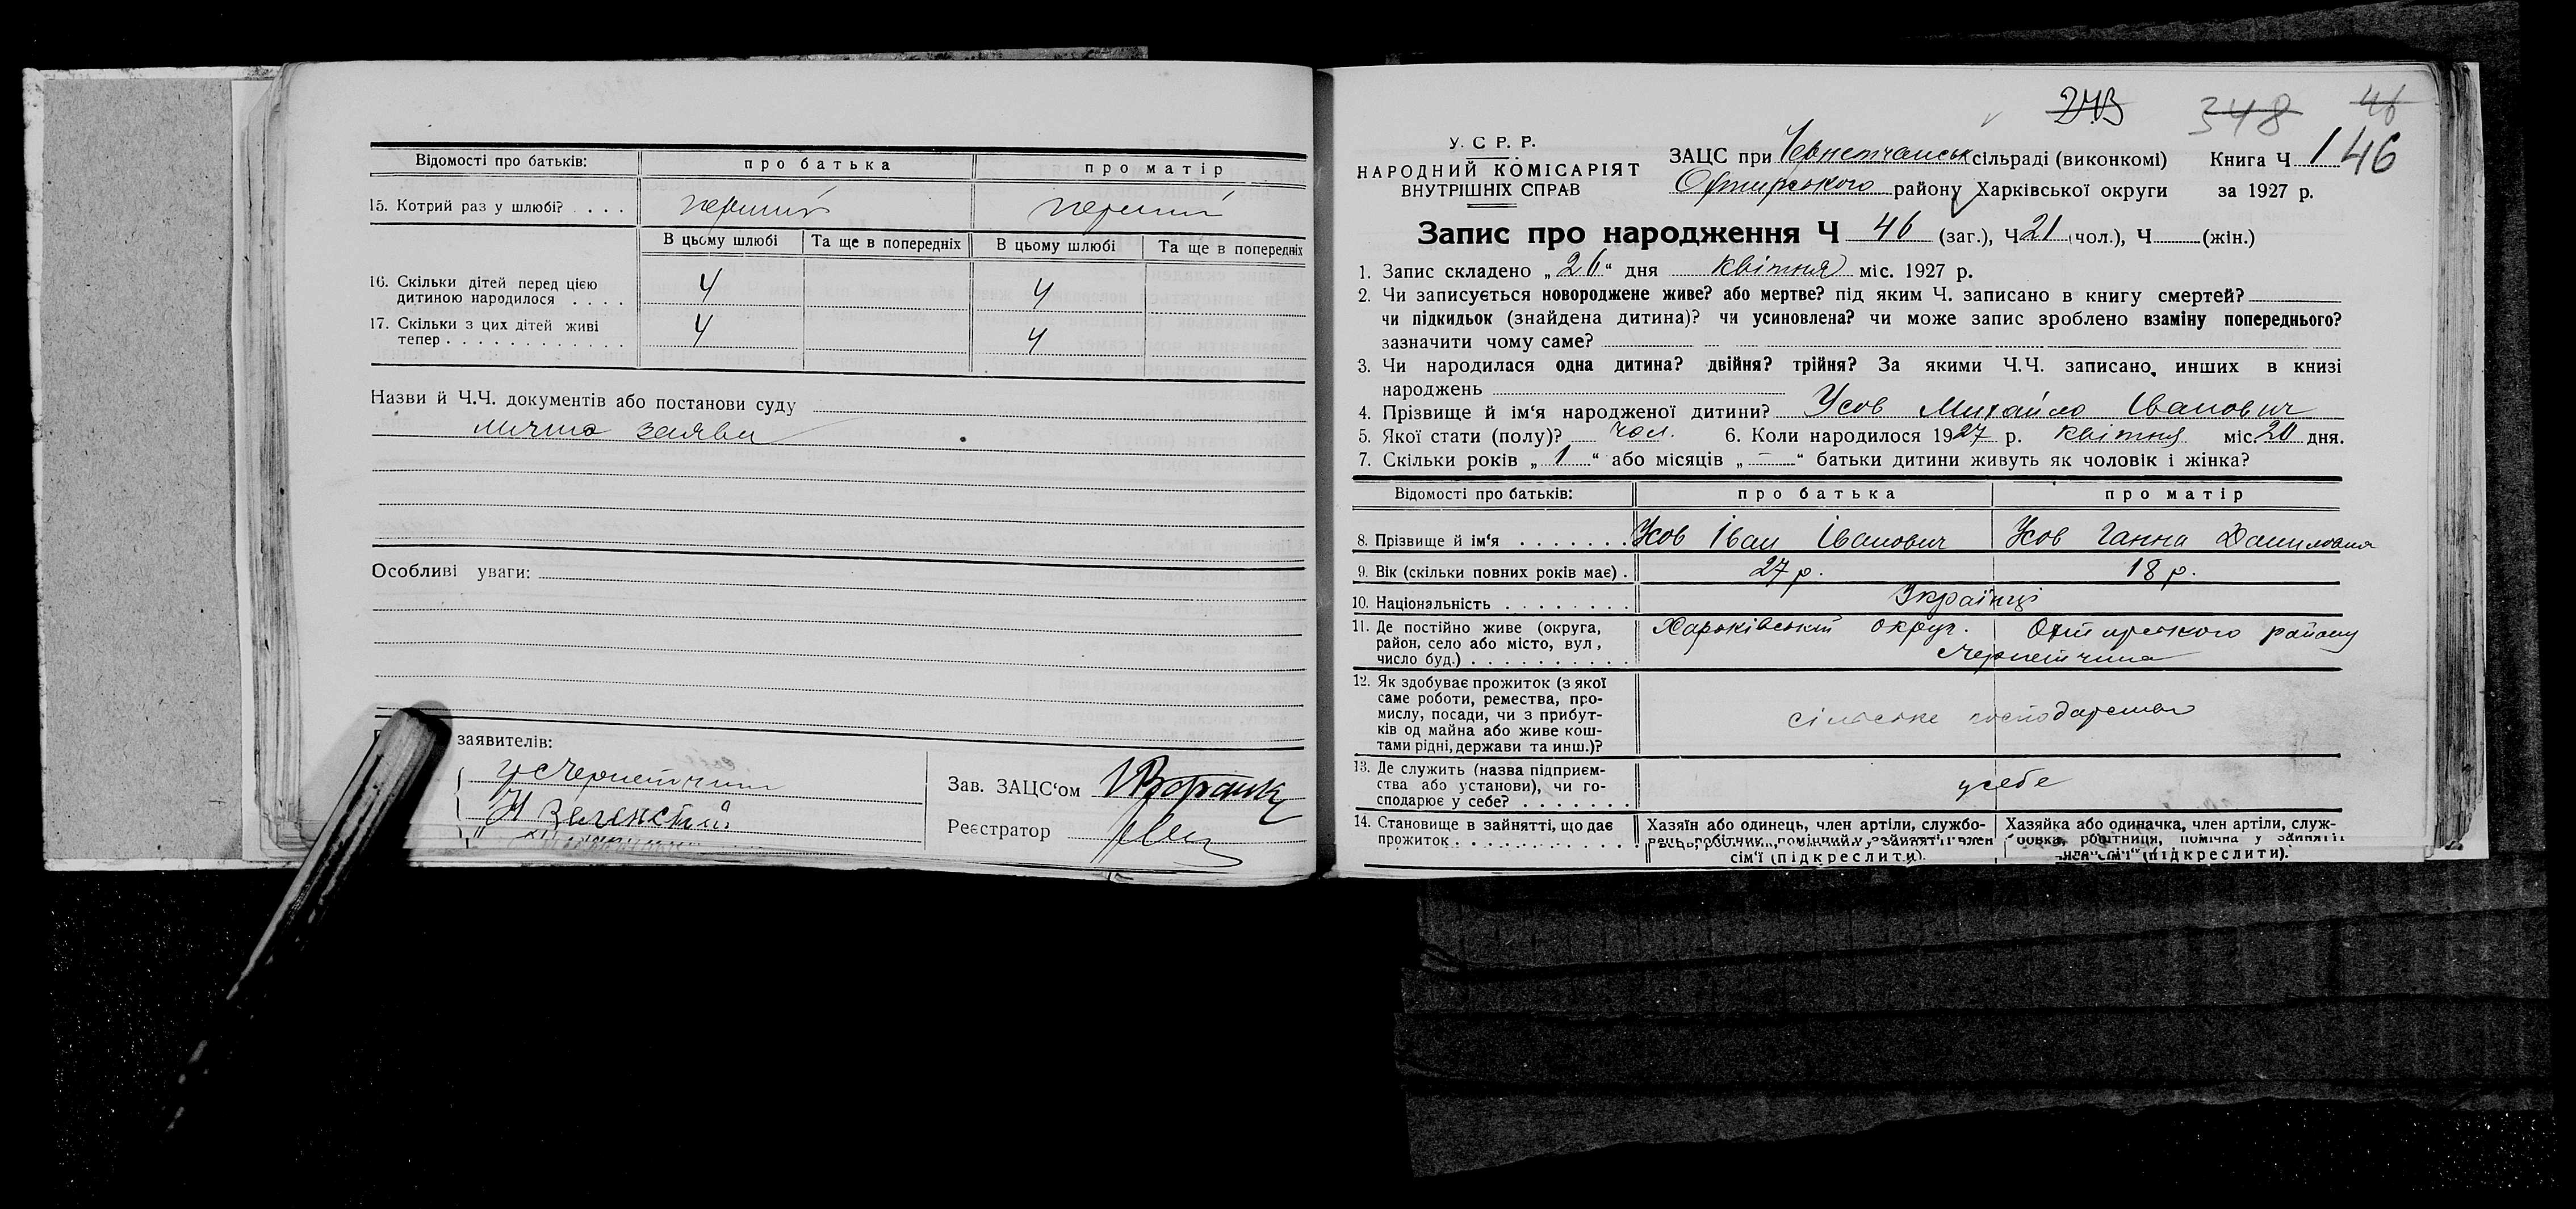 Відомості про батьків: про батька про матір
15. Котрий раз у шлюбі? . . . . перший перший
В цьому шлюбі Та ще в попередніх В цьому шлюбі Та ще в попередніх
16. Скільки дітей перед цією
дитиною народилося . . . . 4 4
17. Скільки з цих дітей живі
тепер . . . . . . . . . . . . . 4 4
Назви й Ч.Ч. документів або постанови суду
лична заява
Особливі уваги:
заявителів:
Зав. ЗАЦС‘ом
Реєстратор
243 348 46
У. С. Р. Р.
НАРОДНИЙ КОМІСАРІЯТ
ВНУТРІШНІХ СПРАВ
ЗАЦС при сільраді (виконкомі) Книга Ч 1 46
району Харківської округи за 1927 р.
Запис про народження Ч 46 (заг.), Ч 21 (чол.), Ч (жін.)
1. Запис складено „ 26 “ дня квітня міс. 1927 р.
2. Чи записується новороджене живе? або мертве? під яким Ч. записано в книгу смертей?
чи підкидьок (знайдена дитина)? чи усиновлена? чи може запис зроблено взаміну попереднього?
зазначити чому саме?
3. Чи народилася одна дитина? двійня? трійня? За якими Ч.Ч. записано, инших в книзі
народжень
4. Прізвище й ім‘я народженої дитини? Усов Михайло Іванович
5. Якої стати (полу)? чол. 6. Коли народилося 1927 р. квітня міс. 20 дня.
7. Скільки років „ 1 “ або місяців „ — “ батьки дитини живуть як чоловік і жінка?
Відомості про батьків: про батька про матір
8. Прізвище й ім‘я . . . . . . . Усов Іван Іванович Усов Ганна Даниловна
9. Вік (скільки повних років має) . 27 р. 18 р.
10. Національність . . . . . . . . Українці
11. Де постійно живе (округа,
район, село або місто, вул,
число буд.) . . . . . . . . . . . Харьківськ округ. Охтирського району
Чернетчина
12. Як здобуває прожиток (з якої
саме роботи, ремества, про-
мислу, посади, чи з прибут-
ків од майна або живе кош-
тами рідні, держави та инш.)? сільське господарство
13. Де служить (назва підприєм-
ства або установи), чи го-
сподарює у себе? . . . . . . . у себе
14. Становище в зайнятті, що дає
прожиток . . . . . . . . . . . .
Хазяїн або одинець, член артіли, службо-
вець, робочик, помічний у зайнятті член
сім‘ї (підкреслити).
Хазяйка або одиначка, член артіли, служ-
бовка, робітниця, помічна у зайнятті
член сім‘ї (підкреслити).